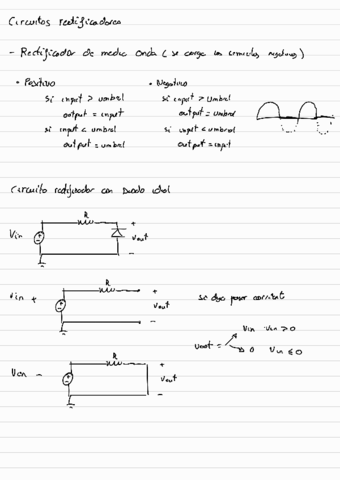 Circuitos rectificadores
- Rectificador de media onda (se carga los semiciclos negativos)
• Positivo
si input > umbral
output = input
si input < umbral
output = umbral
• Negativo
si input > umbral
output = umbral
si input < umbral
output = input
Circuito rectificador con Diodo ideal
R
Vin
+
Vout
-
R
Vin +
+
Vout
-
se deja pasar corriente
Vout =
Vin Vin > 0
0 Vin ≤ 0
R
Vin -
+
Vout
-